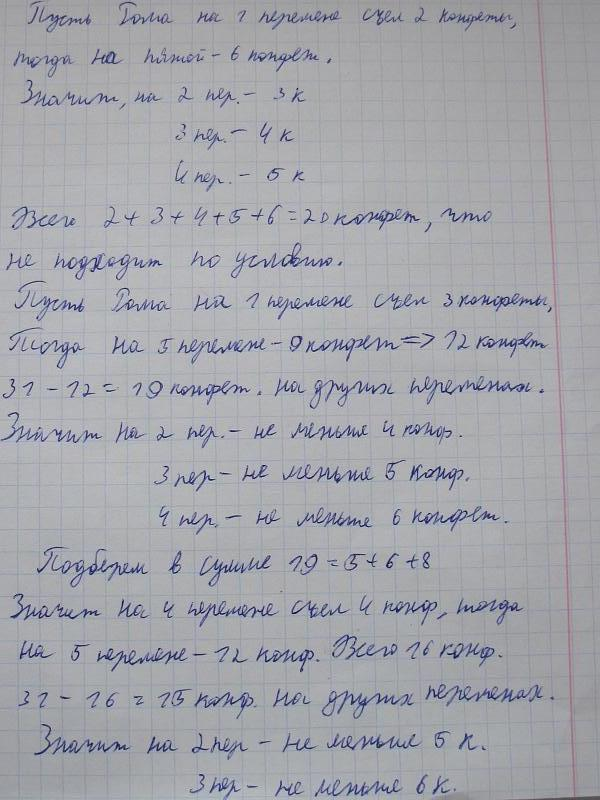 Пусть Рома на 1 перемене съел 2 конфеты,
тогда на пятой - 6 конфет.
Значит, на 2 пер. - 3 к
3 пер. - 4 к
4 пер. - 5 к
Всего 2+3+4+5+6=20 конфет, что
не подходит по условию.
Пусть Рома на 1 перемене съел 3 конфеты,
Тогда на 5 перемене - 9 конфет => 12 конфет
31 - 12 = 19 конфет. на других переменах.
Значит на 2 пер. - не меньше 4 конф.
3 пер - не меньше 5 конф.
4 пер. - не меньше 6 конфет.
Подберем в сумме 19 = 5+6+8
Значит на 4 перемене съел 4 конф, тогда
на 5 перемене - 12 конф. Всего 16 конф.
31 - 16 = 15 конф. на других переменах.
Значит на 2 пер - не меньше 5 к.
3 пер - не меньше 6 к.